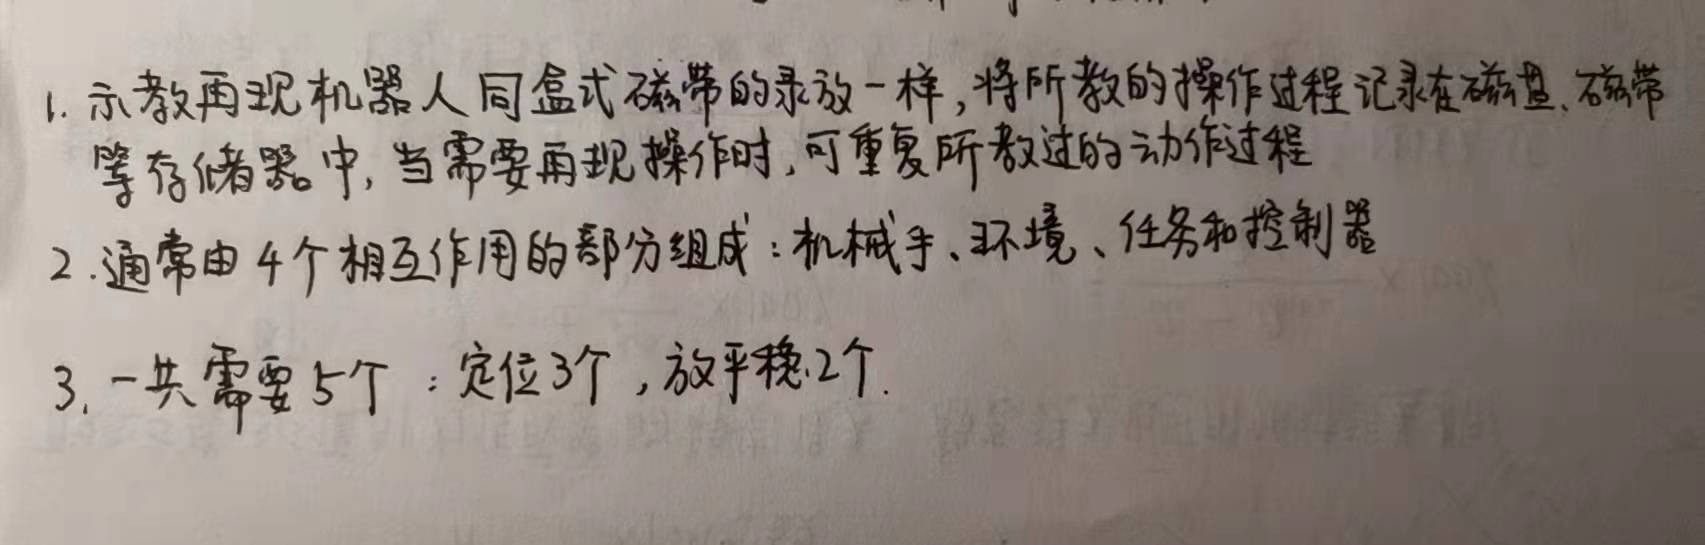 1. 示教再现机器人同盒式磁带的录放一样,将所教的操作过程记录在磁盘、磁带
等存储器中,当需要再现操作时,可重复所教过的动作过程
2.通常由4个相互作用的部分组成:机械手、环境、任务和控制器
3.一共需要5个:定位3个,放平稳2个.